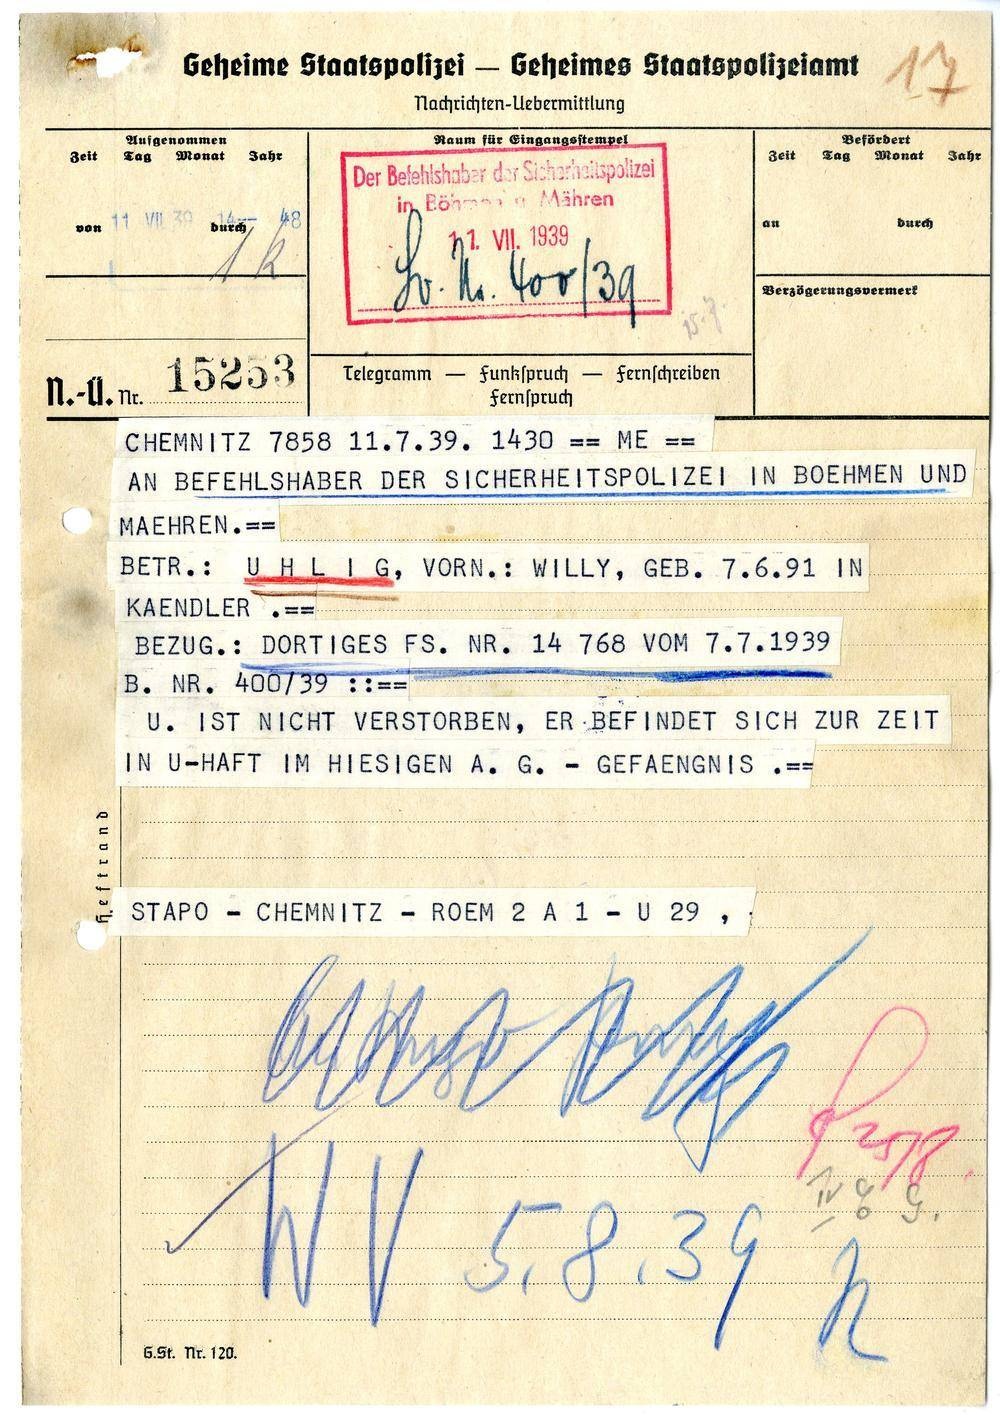 17
Geheime Staatspolizei — Geheimes Staatspolizeiamt
Nachrichten-Uebermittlung
Aufgenommen
Zeit Tag Monat Jahr
von 11 VII 39 14-- 48 durch
Raum für Eingangsstempel
Der Befehlshaber der Sicherheitspolizei
in Böhmen u. Mähren
11. VII. 1939
Nr. 400/39
15.7.
Befördert
Zeit Tag Monat Jahr
an durch
Verzögerungsvermerk
N.-Ü. Nr. 15253
Telegramm — Funkspruch — Fernschreiben
Fernspruch
CHEMNITZ 7858 11.7.39. 1430 == ME ==
AN BEFEHLSHABER DER SICHERHEITSPOLIZEI IN BOEHMEN UND
MAEHREN.==
BETR.: U H L I G, VORN.: WILLY, GEB. 7.6.91 IN
KAENDLER .==
BEZUG.: DORTIGES FS. NR. 14 768 VOM 7.7.1939
B. NR. 400/39 ::==
U. IST NICHT VERSTORBEN, ER BEFINDET SICH ZUR ZEIT
IN U-HAFT IM HIESIGEN A. G. - GEFAENGNIS .==
Heftrand
STAPO - CHEMNITZ - ROEM 2 A 1 - U 29 , .
WV 5.8.39
G.St. Nr. 120.